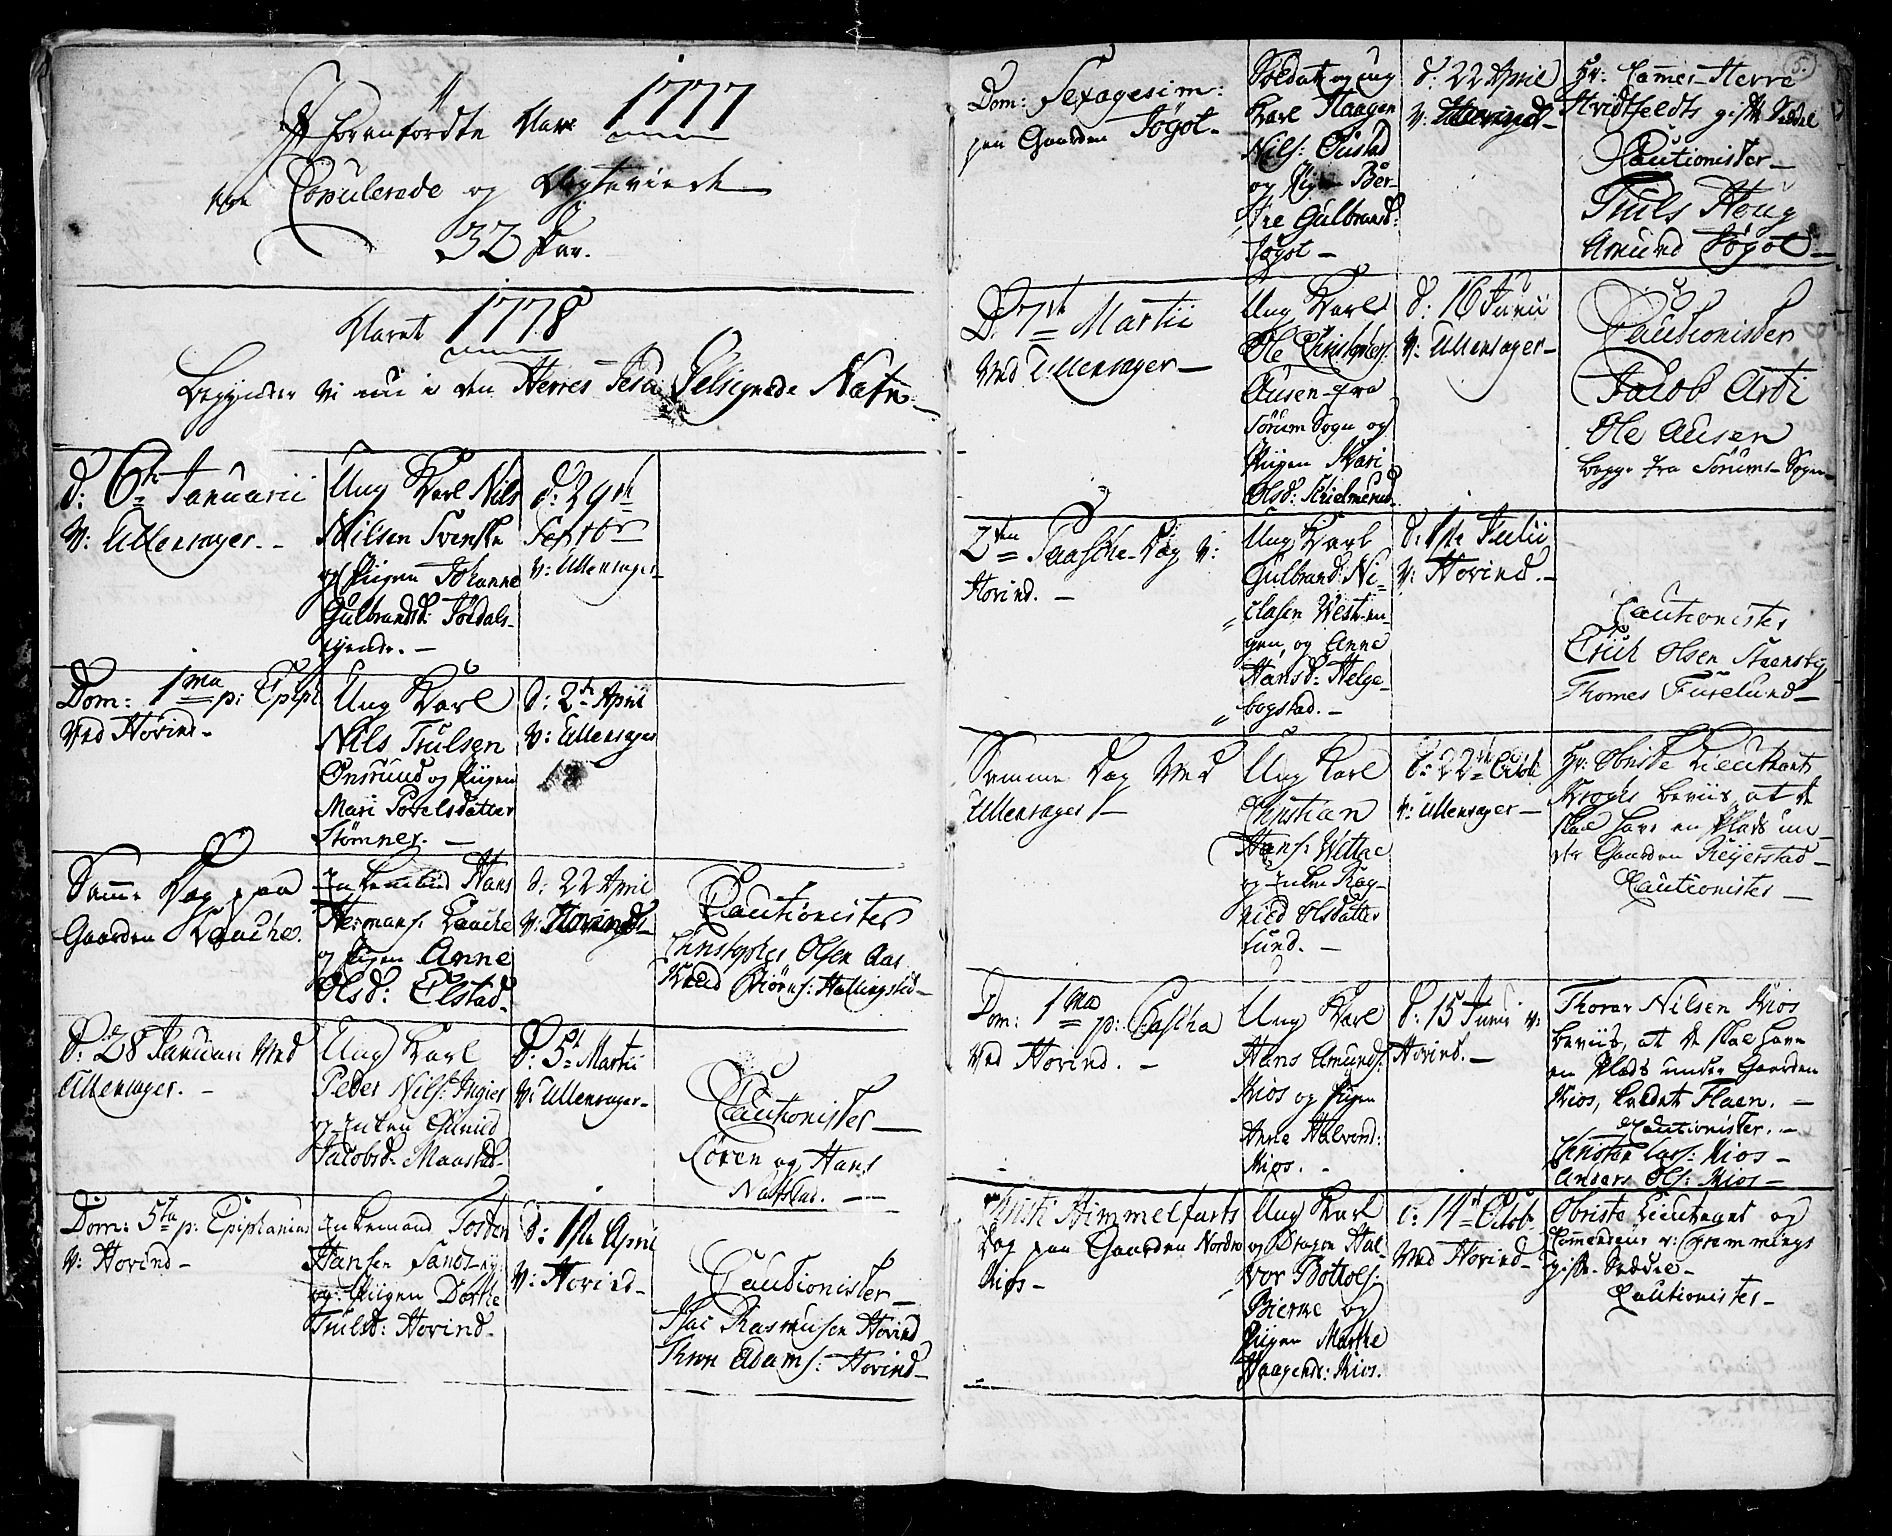 I forenførdte Aar 1777
ere Copulerede og Ægteviede
32 Par.
Aaret 1778
Begynder vi nu i den Herres Jesu Velsignede Nafn
d: 6te Januarii
V: Ullensager.
Ung Karl Nils
Nilsen Svenske
og Piigen Johanne
Gulbrandsd:
d: 29de
Septbr
V: Ullensager
Dom: 1ma p: Epiph
Ved Hovind
Ung Karl
Nils Trulsen
Onsrund og Piigen
Mari Povelsdatter
Stømner.
d: 2de April
V: Ullensager
Samme Dag paa
Gaarden Laache.
Enkemand Hans
Hermans: Laache
og Piigen Anne
Olsd: Elstad
d: 22 April
V: Hovind
Cautionister
Christopher Olsen Aas
Knud Biørns: Hallingstad
d: 28 Januari Ved
Ullensager.
Ung Karl
Peder Nils: Ingier
og Enken Gunild
Jacobsd: Maastad
d: 5te Martii
V: Ullensager
Cautionister
Søren og Hans
Dom: 5ta p: Epiphanias
V: Hovind
Enkemand Tosten
Hansen
og Piigen Dorthe
Trulsd: Hovind
d: 1ste April
V: Hovind
Cautionister
Isac Rasmusen Hovind
Thron Adams: Hovind
5.
Dom: Sexagesim:
paa Gaarden Jøgot
Soldat og ung
Karl Haagen
Nils:
og Pigen Ber-
the Gulbrands:
Jøgot
d: 22 April
V:
Hr: Cammer-Herre
Hvidtfeldts gifte Seddel
Cautionister
Truls Houg
Amund Jøgot
D. 7de Martii
Ved Ullensager
Ung Karl
Ole Christophers:
Ausen fra
Sørum Sogn og
Piigen Kari
Olsd:
d: 16 Junii
V: Ullensager
Cautionister
Jacob
Ole Ausen
begge fra Sørums Sogn
2den Paasche-Dag V:
Hovind.
Ung Karl
Gulbrand Ni-
clasen Westen-
gen og Anne
Hansd: Helge-
bogstad.
d: 1ste Julii
V: Hovind.
Cautionister
Erich Olsen Steensby
Thomes Furelund
Samme Dag Ved
Ullensager
Ung Karl
Christian
Hans: Wittae
og Enken Rag-
nild Olsdatter
Lund.
d: 22de Octob
V: Ullensager
Hr: Obriste Lieutnant
Kroghs beviis, at de
skal have en Plads un-
der Gaarden Reyerstad
Cautionister
Dom: 1ma p: Pascha
Ved Hovind.
Ung Karl
Hans Amunds:
Kios og Piigen
Anne Halvord:
Kios.
d: 15 Junii V:
Hovind.
Thorer Nilsen Kios
beviis, at de skal have
en Plads under Gaarden
Kios, kaldet Flaen.
Cautionister.
Christen Lars: Kios
Anders Ols: Kios
Christi Himmelfarts
Dag paa Gaarden Nordre
Kios
Ung Karl
og Dragon Hal-
vor Bottols:
Bierke og
Piigen Marthe
Haagensd: Kios.
d: 14de Octob.
Ved Hovind
Obriste Lieutnant og
Commandeur v: Gremmings
gifte Seddel
Cautionister